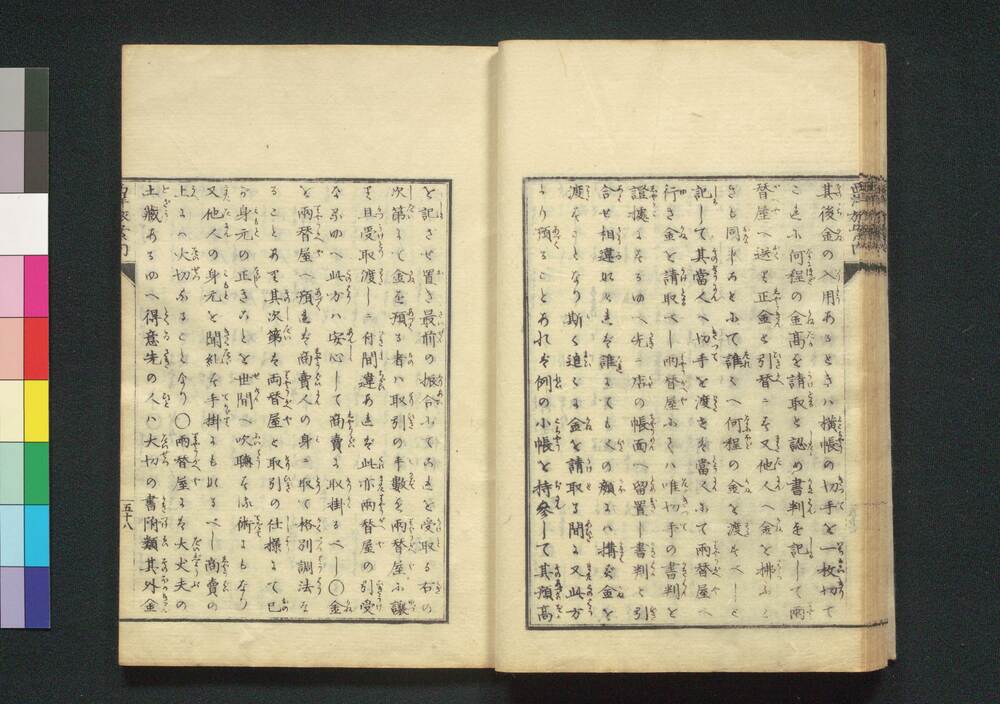 其後金の入用あるときハ横帳の切手を一枚切て
これに何程の金高を請取と認め書判を記して両
替屋へ送れバ正金と引替ニす又他人へ金を拂ふと
きも同じことにて誰に何程の金を渡すべしと
記して其當人へ切手を渡せバ當人にて両替屋へ
行き金を請取べし両替屋にてハ唯切手の書判を
證據とするゆへ先ニ店の帳面へ留置し書判と引
合せ相違なけれバ誰にても人の顔にハ搆ず金を
渡すことなり斯く追々に金を請取る間に又此方
より預ることあれバ例の小帳を持參して其預高
を記させ置き最前の振合にてこれを受取る右の
次第にて金を預る者ハ取引の手數を両替屋に讓
り且受取渡しニ付間違あれバ此亦両替屋の引受
なるゆへ此方ハ安心して商賣に取掛るべし〇金
を両替屋へ預れバ商賣人の身ニ取て格別調法な
ることあり其次第を両替屋と取引の仕樣にて已
が身元の正きことを世間へ吹聴する術にもなり
又他人の身元を聞糺す手掛にもなるべし商賣の
上にハ大切なることなり〇両替屋にハ大丈夫の
土藏あるゆへ得意先の人ハ大切の書附類其外金
五十八